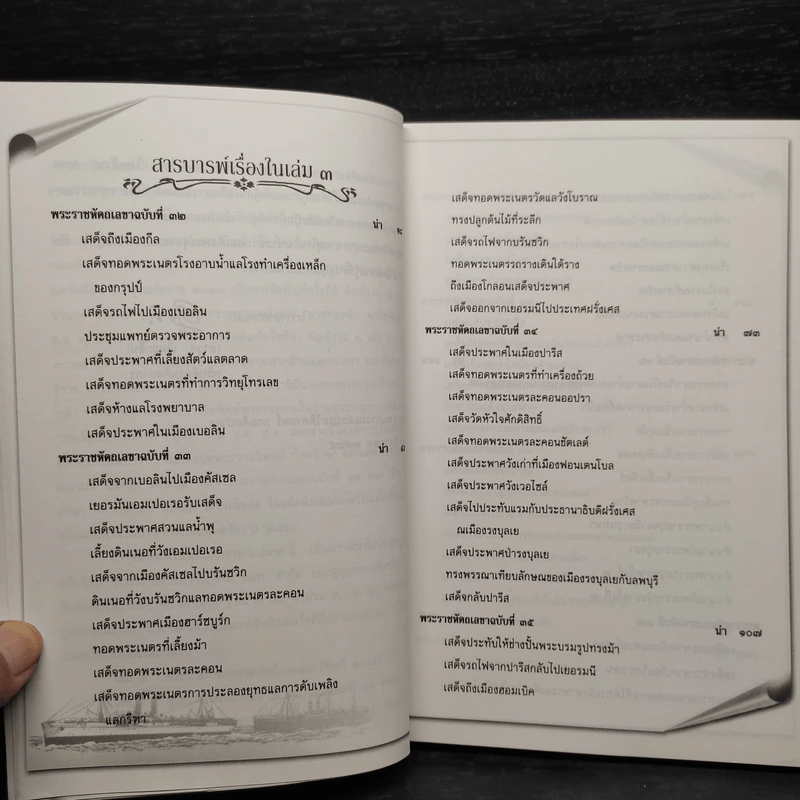 สารบารพ์เรื่องในเล่ม ๓
พระราชหัตถเลขาฉบับที่ ๓๒ น่า
เสด็จถึงเมืองกีล
เสด็จทอดพระเนตรโรงอาบน้ำแลโรงทำเครื่องเหล็ก
ของกรุปป์
เสด็จรถไฟไปเมืองเบอลิน
ประชุมแพทย์ตรวจพระอาการ
เสด็จประพาศที่เลี้ยงสัตว์แลตลาด
เสด็จทอดพระเนตรที่ทำการวิทยุโทรเลข
เสด็จห้างแลโรงพยาบาล
เสด็จประพาศในเมืองเบอลิน
พระราชหัตถเลขาฉบับที่ ๓๓ น่า
เสด็จจากเบอลินไปเมืองคัสเซล
เยอรมันเอมเปอเรอรับเสด็จ
เสด็จประพาศสวนแลน้ำพุ
เลี้ยงดินเนอที่วังเอมเปอเรอ
เสด็จจากเมืองคัสเซลไปบรันซวิก
ดินเนอที่วังบรันซวิกแลทอดพระเนตรละคอน
เสด็จประพาศเมืองฮาร์ซบูร์ก
ทอดพระเนตรที่เลี้ยงม้า
เสด็จทอดพระเนตรละคอน
เสด็จทอดพระเนตรการประลองยุทธแลการดับเพลิง
แลกรีฑา
เสด็จทอดพระเนตรวัดแลวังโบราณ
ทรงปลูกต้นไม้ที่ระลึก
เสด็จรถไฟจากบรันซวิก
ทอดพระเนตรรถรางเดินใต้ราง
ถึงเมืองโกลอนเสด็จประพาศ
เสด็จออกจากเยอรมนีไปประเทศฝรั่งเศส
พระราชหัตถเลขาฉบับที่ ๓๔ น่า ๗๓
เสด็จประพาศในเมืองปารีส
เสด็จทอดพระเนตรที่ทำเครื่องถ้วย
เสด็จทอดพระเนตรละคอนออปรา
เสด็จวัดหัวใจศักดิสิทธิ์
เสด็จทอดพระเนตรละคอนชัตเลต์
เสด็จประพาศวังเก่าที่เมืองฟอนเตนโบล
เสด็จประพาศวังเวอไซล์
เสด็จไปประทับแรมกับประธานาธิบดีฝรั่งเศส
ณเมืองรงบุลเย
เสด็จประพาศป่ารงบุลเย
ทรงพรรณาเทียบลักษณของเมืองรงบุลเยกับลพบุรี
เสด็จกลับปารีส
พระราชหัตถเลขาฉบับที่ ๓๕ น่า ๑๐๗
เสด็จประทับให้ช่างปั้นพระบรมรูปทรงม้า
เสด็จรถไฟจากปารีสกลับไปเยอรมนี
เสด็จถึงเมืองฮอมเบิค